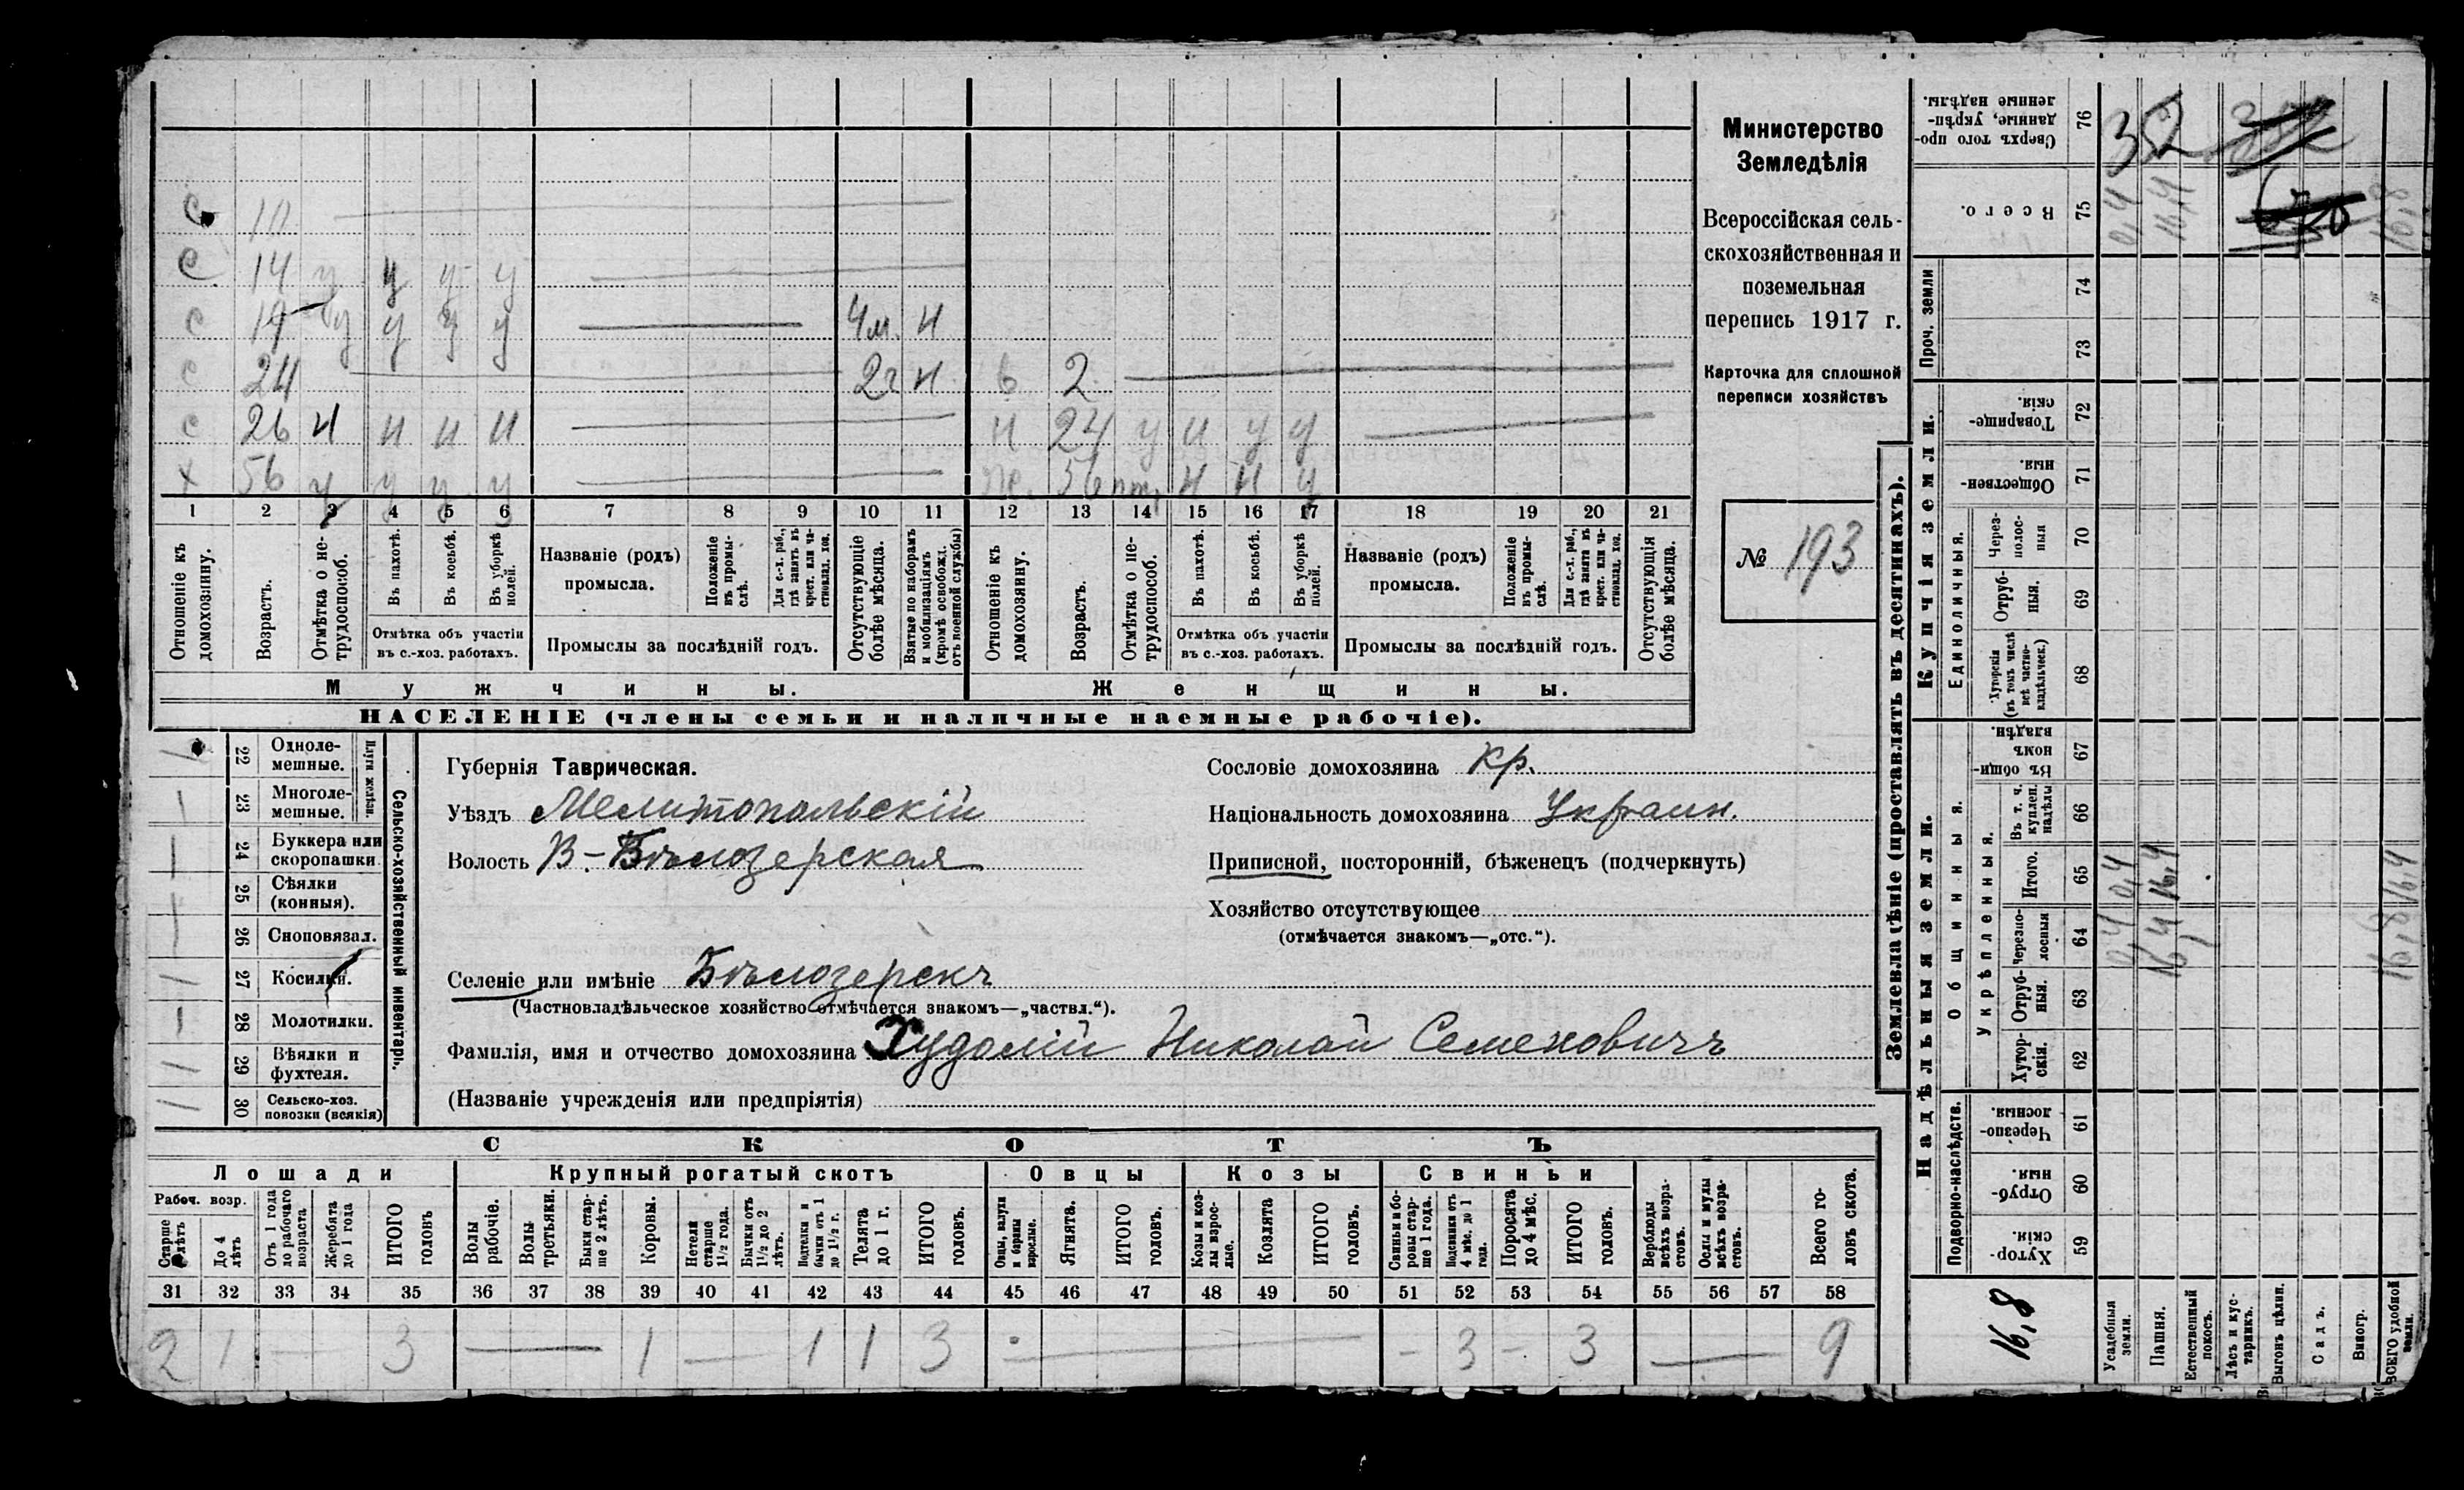 с 10
с 14 у у у у
с 19 у у у у 4м. н
с 24 2г н в 2
с 26 н н н н н 24 у н у у
х 56 у у у у ж. 56 н н у
1 2 3 4 5 6 7 8 9 10 11 12 13 14 15 16 17 18 19 20 21
Отношеніе къ домохозяину.
Возрастъ.
Отмѣтка о не-трудоспособ.
Въ пахотѣ.
Въ косьбѣ.
Въ уборкѣ полей.
Отмѣтка объ участіи въ с.-хоз. работахъ.
Названіе (родъ) промысла.
Положеніе въ промы-слѣ.
Для с.-х. раб., гдѣ занятъ въ крест. или ча-стновлад. хоз.
Промыслы за послѣдній годъ.
Отсутствующіе болѣе мѣсяца.
Взятые по наборамъ и мобилизаціямъ (кромѣ освобожд. отъ военной службы)
Отношеніе къ домохозяину.
Возрастъ.
Отмѣтка о не-трудоспособ.
Въ пахотѣ.
Въ косьбѣ.
Въ уборкѣ полей.
Отмѣтка объ участіи въ с.-хоз. работахъ.
Названіе (родъ) промысла.
Положеніе въ промы-слѣ.
Для с.-х. раб., гдѣ занята въ крест. или ча-стновлад. хоз.
Промыслы за послѣдній годъ.
Отсутствующія болѣе мѣсяца.
Мужчины. Женщины.
НАСЕЛЕНІЕ (члены семьи и наличные наемные рабочіе).
Министерство
Земледѣлія
Всероссійская сель-
скохозяйственная и
поземельная
перепись 1917 г.
Карточка для сплошной
переписи хозяйствъ
№ 193
Сельско-хозяйственный инвентарь.
Плуги желѣзн.
22 Одноле-мешные.
23 Многоле-мешные.
24 Буккера или скоропашки
25 Сѣялки (конныя).
26 Сноповязал.
27 Косилки.
28 Молотилки.
29 Вѣялки и фухтеля.
30 Сельско-хоз. повозки (всякія)
Губернія Таврическая.
Уѣздъ Мелитопольскій
Волость В-Бѣлозерская
Селеніе или имѣніе Бѣлозерскъ
(Частновладѣльческое хозяйство отмѣчается знакомъ—„частвл.“).
Фамилія, имя и отчество домохозяина Худолій Николай Семеновичъ
(Названіе учрежденія или предпріятія)
Сословіе домохозяина кр.
Національность домохозяина Украин.
Приписной, посторонній, бѣженецъ (подчеркнуть)
Хозяйство отсутствующее
(отмѣчается знакомъ—„отс.“).
СКОТЪ
Лошади Крупный рогатый скотъ Овцы Козы Свиньи
Рабоч. возр.
Старше лѣтъ
До 4 лѣтъ
Отъ 1 года до рабочаго возраста
Жеребята до 1 года
ИТОГО головъ
Волы рабочіе.
Волы третьяки.
Быки стар-ше 2 лѣтъ.
Коровы.
Нетели старше 1½ года.
Бычки отъ 1½ до 2 лѣтъ.
Подтелки и бычки отъ 1 до 1½ г.
Телята до 1 г.
ИТОГО головъ.
Овцы, валухи и бараны взрослые.
Ягнята.
ИТОГО головъ.
Козы и коз-лы взрос-лые.
Козлята
ИТОГО головъ.
Свиньи и бо-ровы стар-ше 1 года.
Подсвинки отъ 4 мѣс. до 1 года.
Поросята до 4 мѣс.
ИТОГО головъ.
Верблюды всѣхъ возра-стовъ.
Ослы и мулы всѣхъ возра-стовъ.
Всего го-ловъ скота.
31 32 33 34 35 36 37 38 39 40 41 42 43 44 45 46 47 48 49 50 51 52 53 54 55 56 57 58
2 1 — 3 — 1 — 1 1 3 — - 3 - 3 — 9
Землевладѣніе (проставлять въ десятинахъ).
Надѣльныя земли. Купчія земли. Проч. земли
Подворно-наслѣдств.
Общинныя
Укрѣпленныя.
Единоличныя.
Хутор-скія. 59
Отруб-ныя. 60
Черезпо-лосныя. 61
Хутор-скія. 62
Отруб-ныя. 63
Черезпо-лосныя 64
Итого. 65
Въ т. ч. куплен. надѣлы 66
Въ общин-номъ владѣн. 67
Хуторскія (въ томъ числѣ всѣ частно-владѣльческ.) 68
Отруб-ныя. 69
Через-полос-ныя 70
Обществен-ныя. 71
Товарище-скія. 72
73
74
Всего. 75
Сверхъ того про-данные, укрѣп-ленные надѣлы. 76
16,8
Усадебныя земли. 0,4 0,4 0,4
Пашня. 16,4 16,4 16,4
Естественный покосъ.
Лѣсъ и кус-тарникъ.
Выгонъ цѣлин.
Садъ.
Виногр.
ВСЕГО удобной земли. 16,8 16,4 16,8
352